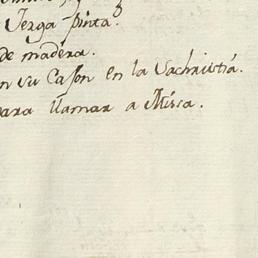 Jerga pinta.ᵒ
de madera.
n su Cajon en la Sachristiá.
para llamar a Missa.